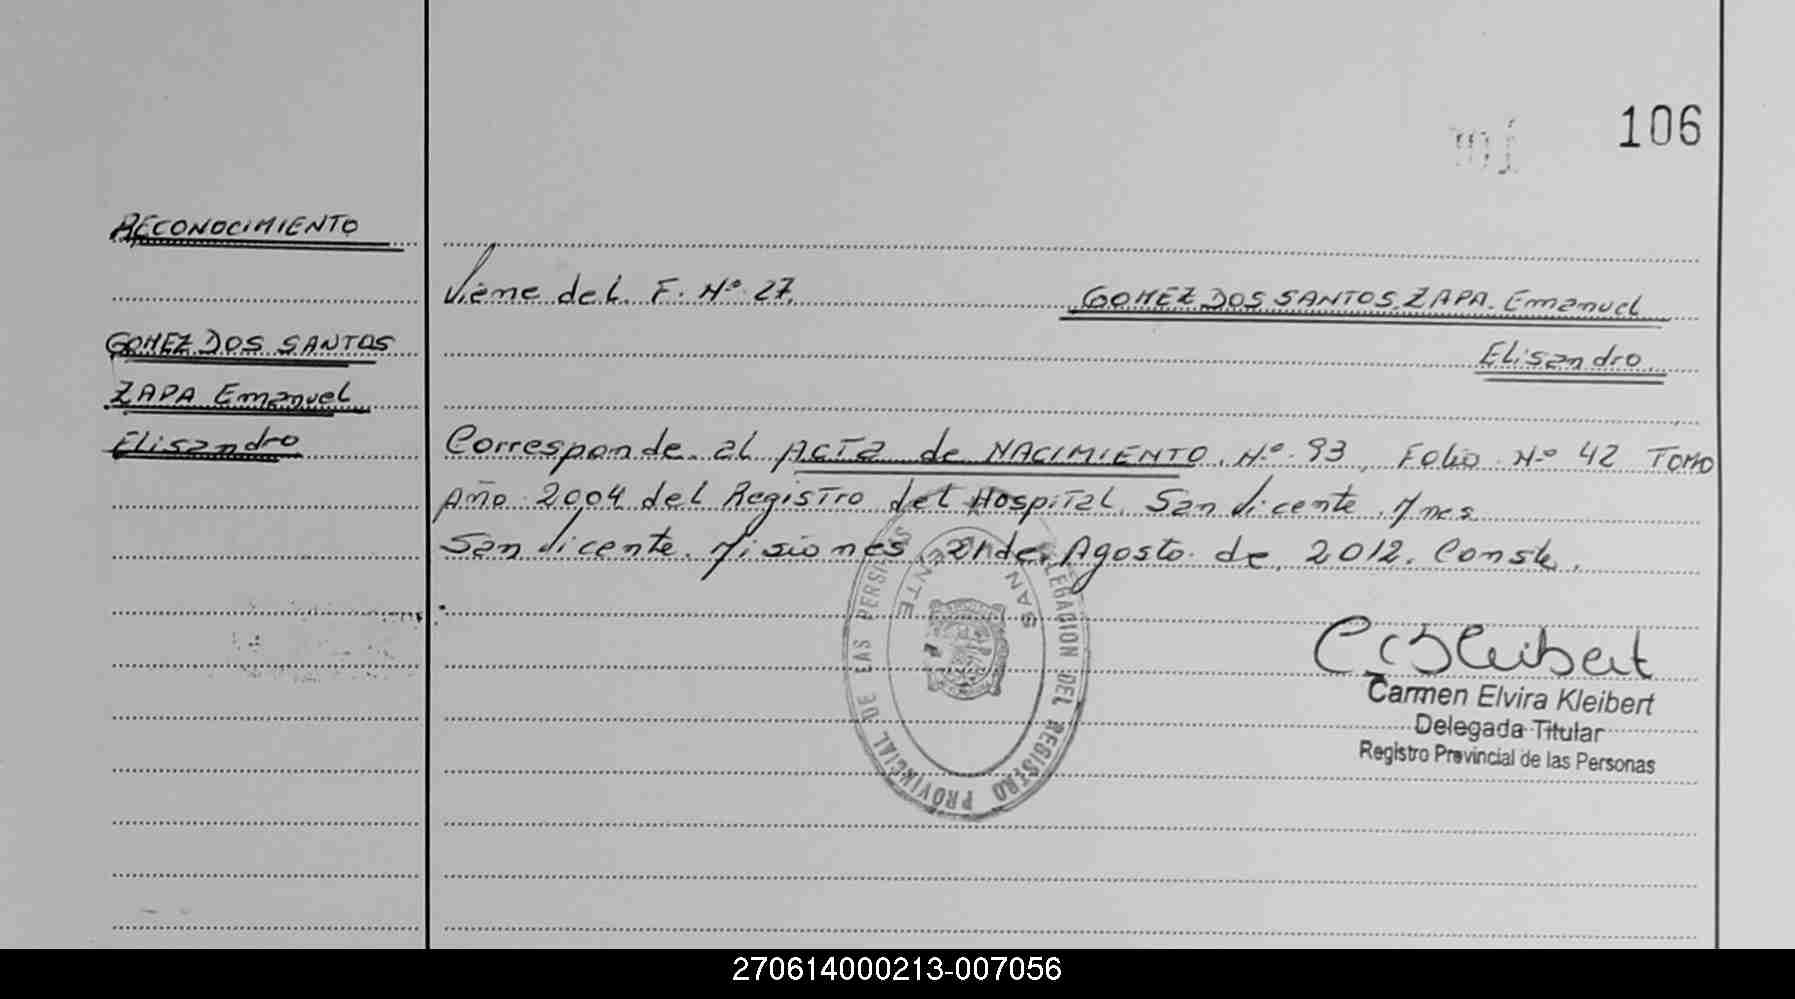 106
RECONOCIMIENTO
Viene del F. Nº 27.
GOMEZ DOS SANTOS ZAPA Emanuel
Elisandro
GOMEZ DOS SANTOS
ZAPA Emanuel
Elisandro
Corresponde al ACTA de NACIMIENTO Nº 93, Folio Nº 42 TOMO
Año 2004 del Registro del Hospital San Vicente Mnes
San Vicente Misiones 21 de Agosto de 2012. Conste.
DELEGACION DEL REGISTRO PROVINCIAL DE LAS PERSONAS
SAN VICENTE
Carmen Elvira Kleibert
Delegada Titular
Registro Provincial de las Personas
270614000213-007056